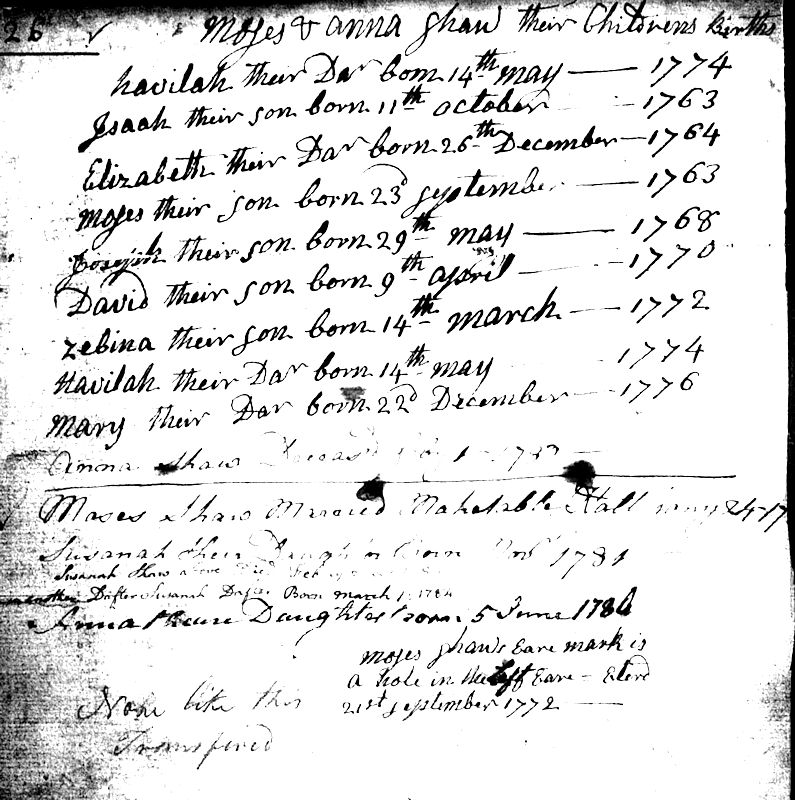 26
Moses & Anna Shaw their Childrens Births
havilah their Dar born 14th may — 1774
Isaah their son born 11th october — 1763
Elizabeth their Dar born 26th December — 1764
Moses their son born 23d september — 1763
Joseph their son born 29th may — 1768
David their son born 9th april — 1770
Zebina their son born 14th march — 1772
Havilah their Dar born 14th may 1774
Mary their Dar born 22d December — 1776
Anna Shaw
Moses Shaw Married Mahetable Hall 24-17
Susanah their Born 1781
Susanah Shaw above Died
Dafter Susanah Born March 1 1784
Anna Daughter born 5 June 178
moses shaw's Eare mark is
a hole in the left Eare — Eterd
21st september 1772 —
None like this
Transfired